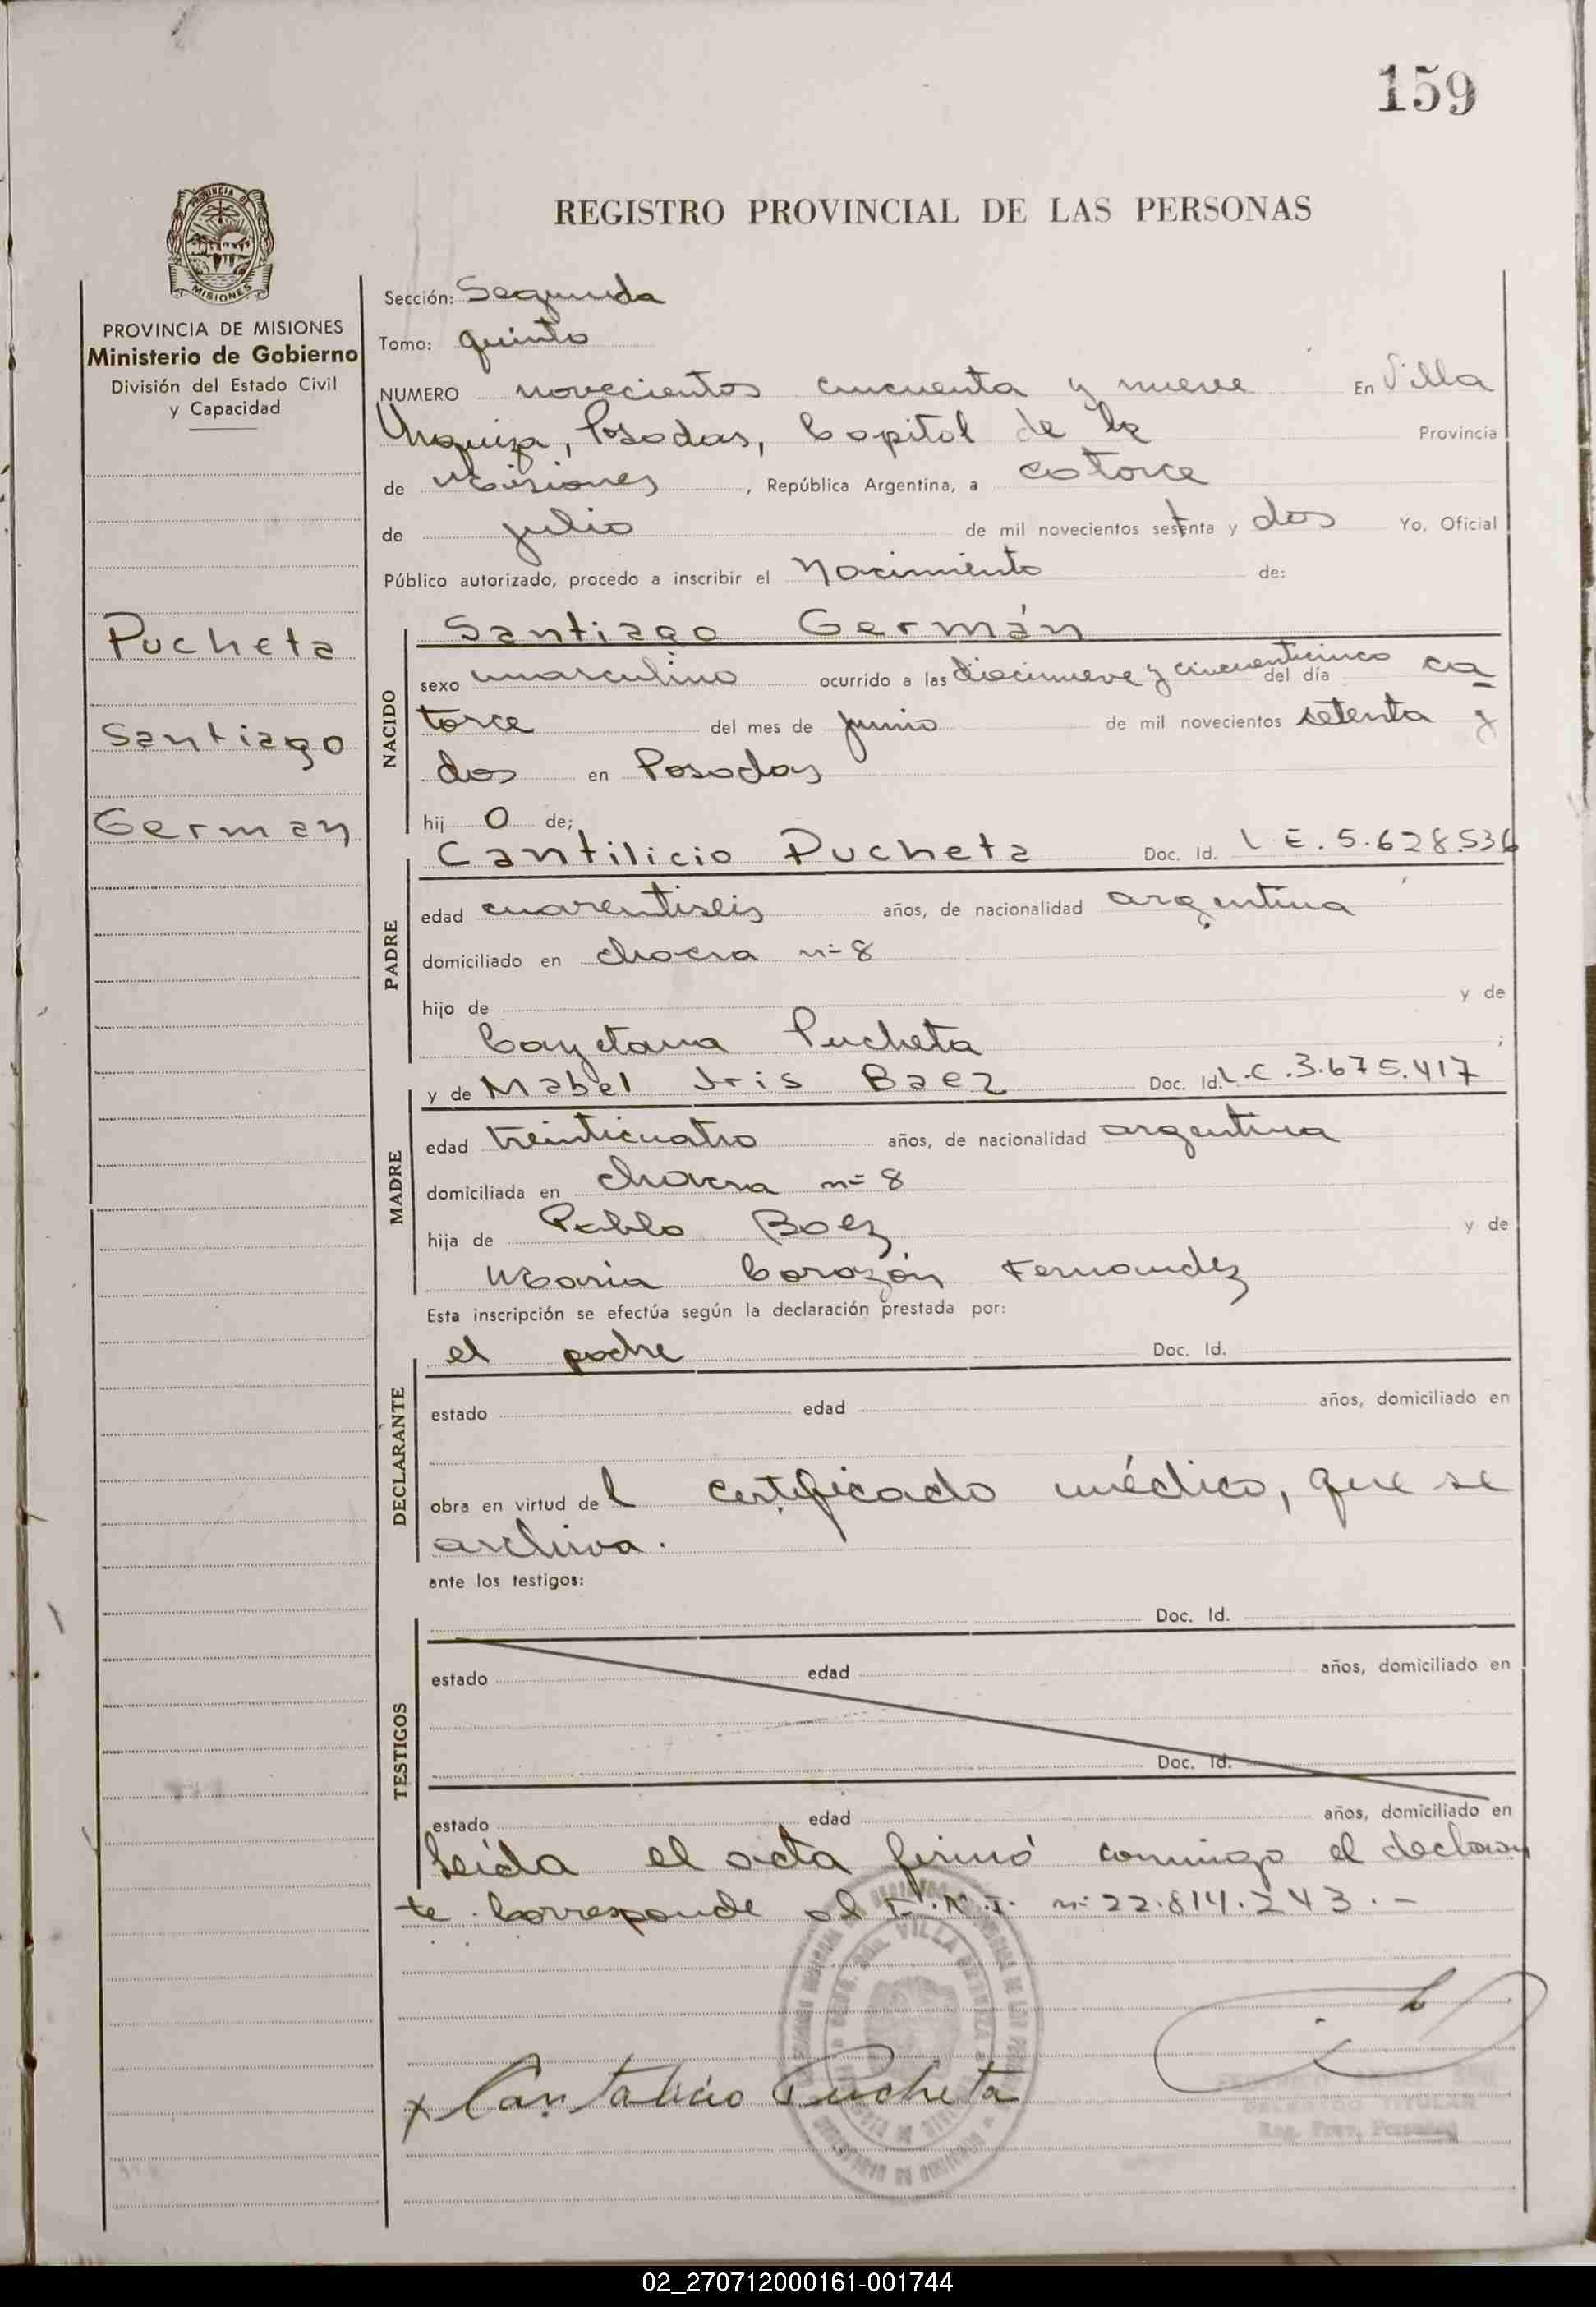 159
PROVINCIA DE
MISIONES
PROVINCIA DE MISIONES
Ministerio de Gobierno
División del Estado Civil
y Capacidad
Pucheta
Santiago
German
REGISTRO PROVINCIAL DE LAS PERSONAS
Sección: Segunda
Tomo: quinto
NUMERO novecientos cincuenta y nueve En Villa
Urquiza, Posadas, Capital de la Provincia
de Misiones, República Argentina, a catorce
de julio de mil novecientos setenta y dos Yo, Oficial
Público autorizado, procedo a inscribir el Nacimiento de:
NACIDO
Santiago Germán
sexo masculino ocurrido a las diecinueve y cincuenticinco del día ca=
torce del mes de junio de mil novecientos setenta y
dos en Posadas
hij o de;
PADRE
Cantilicio Pucheta Doc. Id. L E. 5.628.536
edad cuarentiseis años, de nacionalidad argentina
domiciliado en chacra nº 8
hijo de y de
Cayetana Pucheta ;
MADRE
y de Mabel Iris Baez Doc. Id. L.C. 3.675.417
edad treinticuatro años, de nacionalidad argentina
domiciliada en chacra nº 8
hija de Pablo Baez y de
Maria Corazón Fernandez
Esta inscripción se efectúa según la declaración prestada por:
DECLARANTE
el padre Doc. Id.
estado edad años, domiciliado en
obra en virtud de l certificado médico, que se
archiva.
ante los testigos:
TESTIGOS
Doc. Id.
estado edad años, domiciliado en
Doc. Id.
estado edad años, domiciliado en
Leída el acta firmó conmigo el declaran
te. Corresponde al nº 22.814.243.-
x Cantalicio Pucheta
DELEGADO TITULAR
Reg. Prov. Personas
02_270712000161-001744